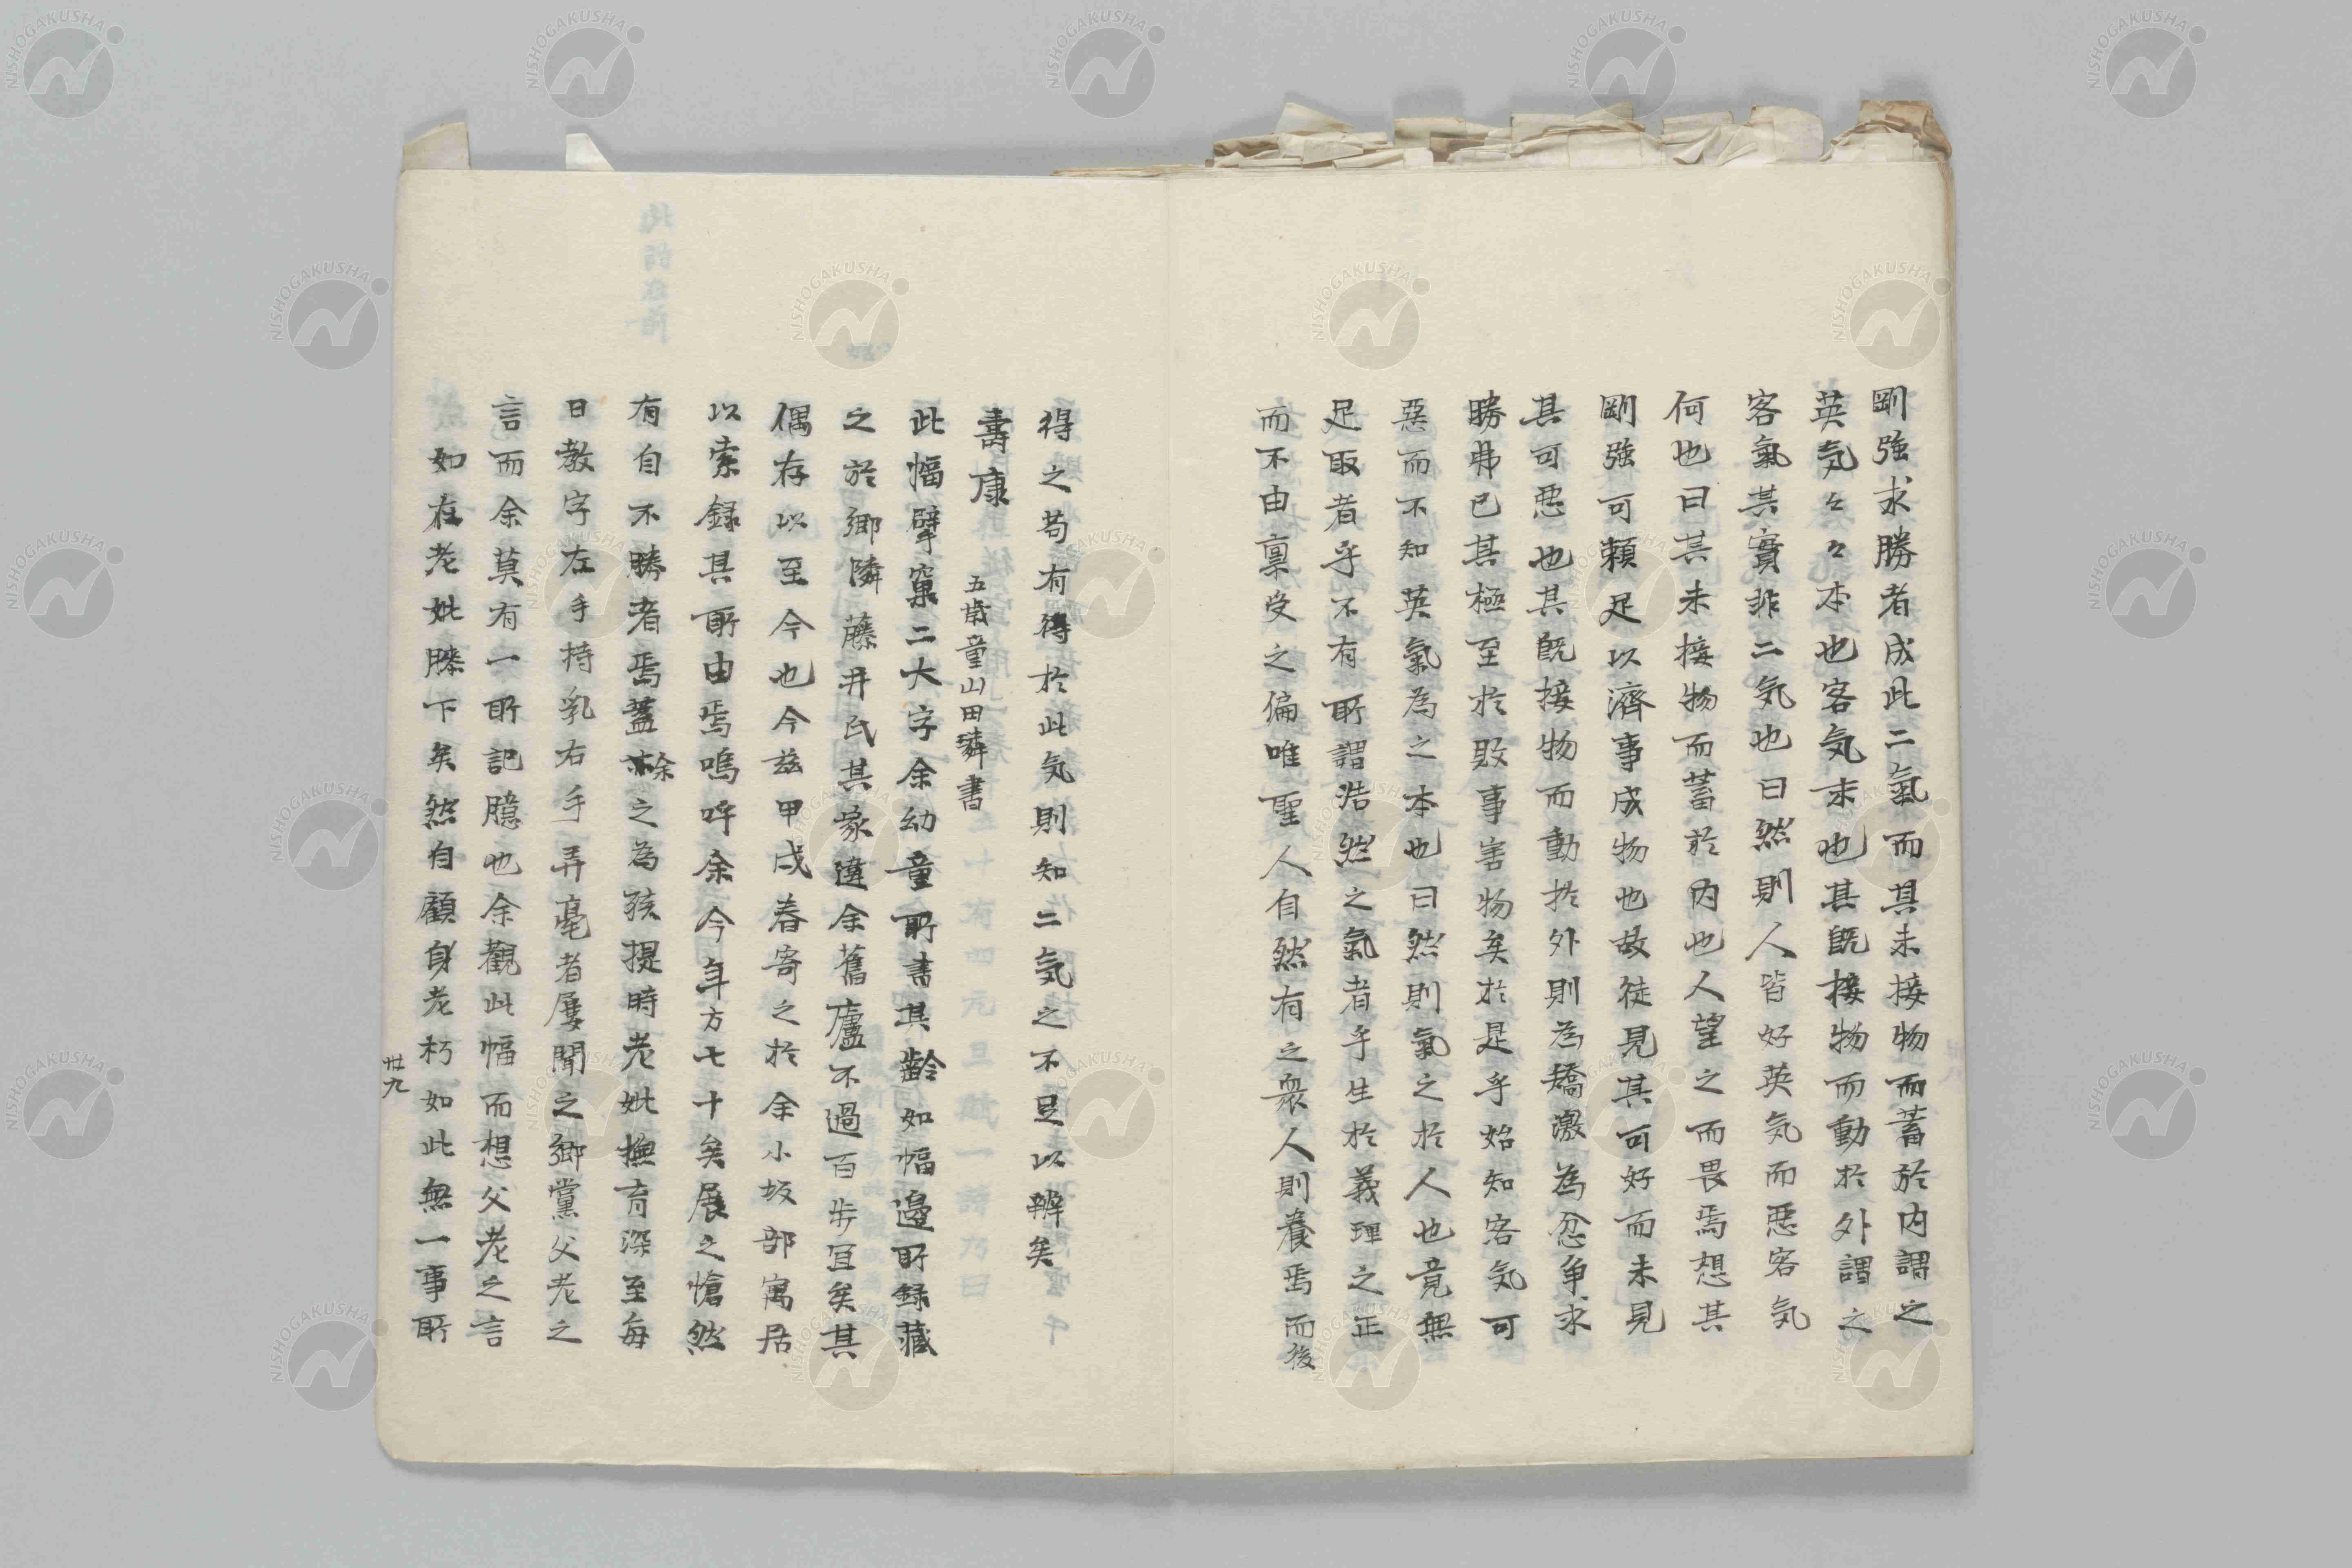 剛強求勝者成此二氣而其未接物而蓄於内謂之
英気々々本也客気末也其既接物而動於外謂之
客氣其實非二気也曰然則人皆好英気而悪客気
何也曰其未接物而蓄於内也人望之而畏焉想其
剛強可頼足以濟事成物也故徒見其可好而未見
其可悪也其既接物而動於外則為矯激為忿争求
勝弗已其極至於敗事害物矣於是乎始知客気可
惡而不知英氣為之本也曰然則氣之於人也竟無
足取者乎不有所謂浩然之氣者乎生於義理之正
而不由稟受之偏唯聖人自然有之衆人則養焉而後
得之苟有得於此気則知二気之不足以辨矣
壽康
五歳童山田璘書
此幅擘窠二大字余幼童所書其齡如幅邊所録藏
之於郷隣藤井氏其家違余舊廬不過百歩宜矣其
偶存以至今也今玆甲戌春寄之於余小坂部寓居
以索録其所由焉嗚呼余今年方七十矣展之愴然
有自不勝者焉蓋余之為孩提時老妣撫育深至毎
日教字左手持乳右手弄毫者屡聞之郷黨父老之
言而余莫有一所記臆也余觀此幅而想父老之言
如在老妣膝下矣然自顧身老朽如此無一事所
卅九
NISHOGAKUSHA